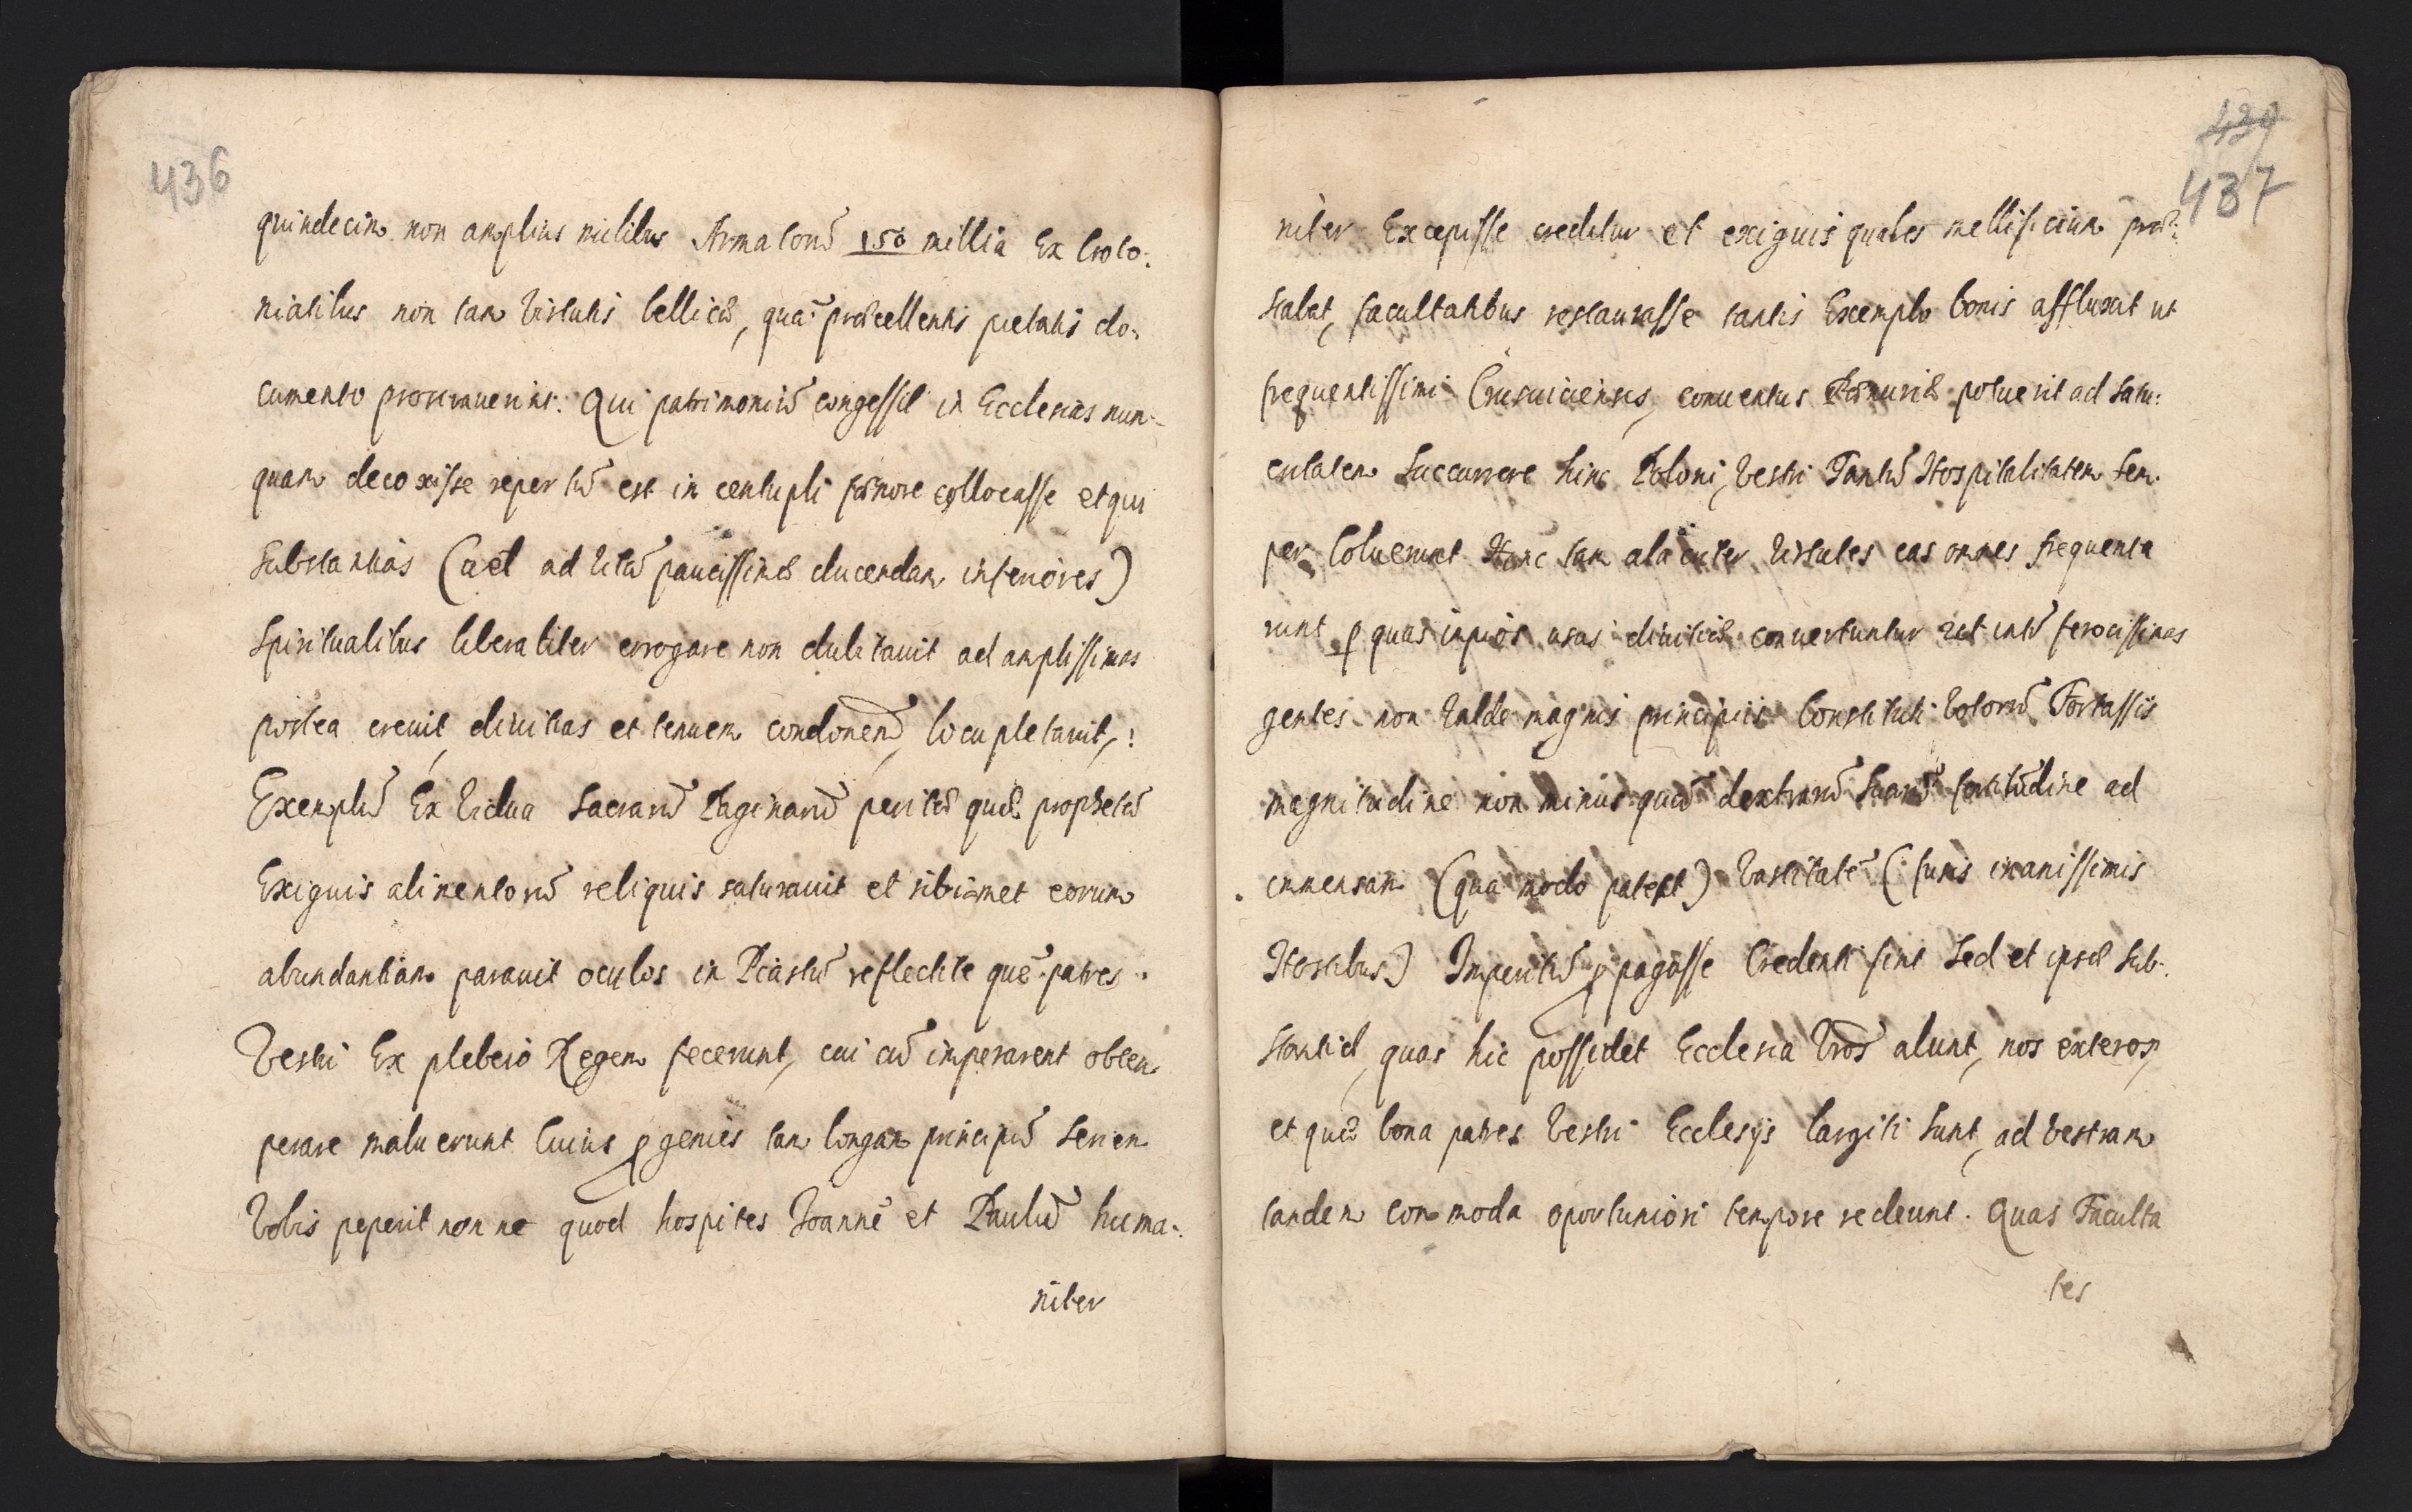 436
quindecim non amplius militibus Armatorū 150 millia Ex Croto-
niatibus non tam Virtutis bellicæ, quā præcellentis pietatis do-
cumento prostrauerint. Qui patrimoniū congessit in Ecclesias nun-
quam decoxisse repertū est in centupli fænore collocasse et qui
Substantias (ad Vitā paucissimis ducendam inferiores)
Spiritualibus liberaliter errogare non dubitauit ad amplissimas
postea creuit, diuitias et tenuem condonend, locupletauit,:
Exemplū Ex Vidua Sacrarū Paginarū peritā quæ prophetā
Exiguis alimentorū reliquis saturauit et sibimet eorum
abundantiam parauit oculos in Piastū reflectite quē patres
Vestri Ex plebeio Regem fecerunt, cui cū imperarent obtem-
perare maluerunt Cuius ꝓgenies tam longam principū Seriem
Vobis peperit non ne quod hospites Joannē et Paulū huma-
niter
430
437
niter Excepisse creditur et exiguis quales mellificium præ-
stabat, facultatibus restaurasse tantis Exemplo bonis affluxat ut
frequentissimi Crusuiciensis, conuentus Pænuriæ potuerit ad Satu-
ritatem Succurrere hinc Poloni, Vestri Tantū Hospitalitatem Sem-
per Coluerunt Hanc tam alacriter Virtutes eas omnes frequenta
runt ꝓ quas in pios usus diuitiæ conuertuntur Vt intū ferocissimas
gentes non Valde magnis principiis Constituti Votorū Fortassis
magnitudine non minus quā dextrarū Suarū fortitudine ad
immensam (qua modo patent) Vastitatē (funis inanissimis
Hostibus) Imperitū ꝓpagasse Credenti sint Sed et ipsæ Sub-
stantiæ, quas hic possidet Ecclesia Vros alunt, nos exteros,
et quæ bona patres Vestri Ecclesijs largiti Sunt, ad vestram
tandem commoda oportuniori tempore redeunt. Quas Faculta
tes